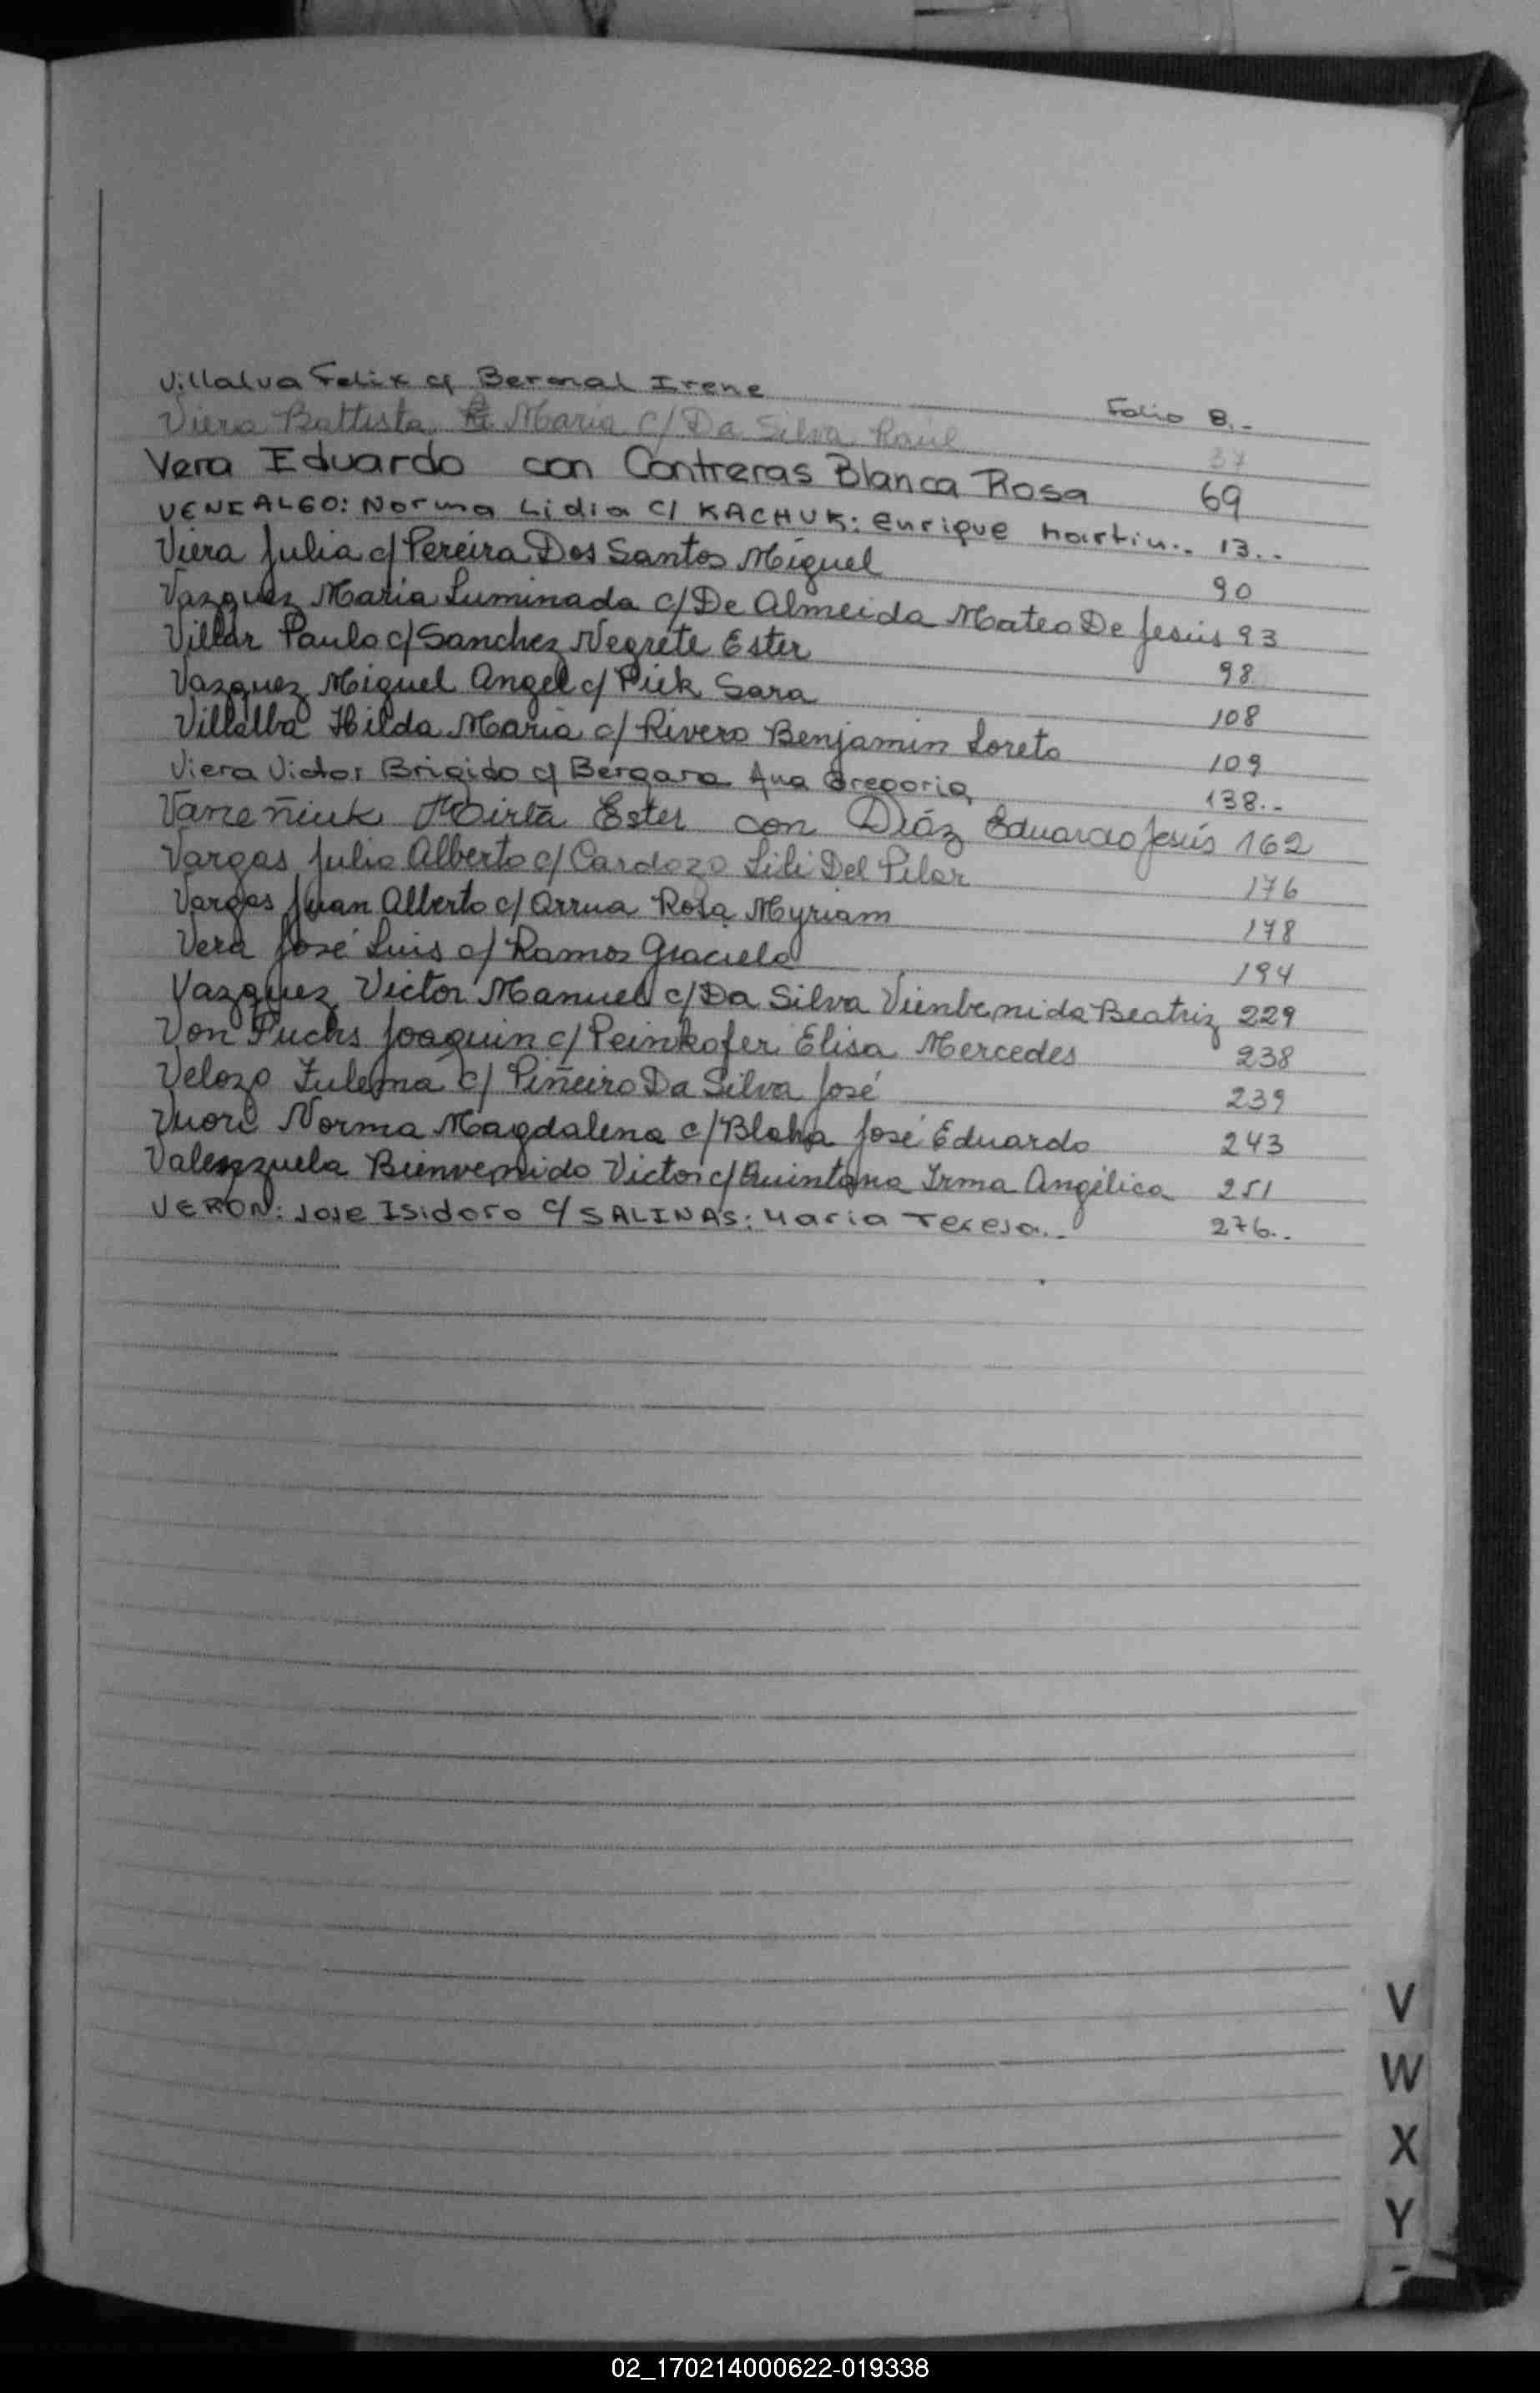 Villalva Felix c/ Bernal Irene Folio 8.-
Viera Battista Maria c/ Da Silva Raúl 37
Vera Eduardo con Contreras Blanca Rosa 69
VENIALGO: Norma Lidia c/ KACHUK: Enrique Martin.. 13..
Viera Julia c/ Pereira Dos Santos Miguel 90
Vazquez Maria Luminada c/ De Almeida Mateo De Jesús 93
Villar Paulo c/ Sanchez Negrete Ester 98
Vazquez Miguel Angel c/ Piek Sara 108
Villalba Hilda Maria c/ Rivero Benjamin Loreto 109
Viera Victor Brigido c/ Bergara Ana Gregoria 138.-
Mirta Ester con Diáz Eduardo Jesús 162
Vargas Julio Alberto c/ Cardozo Lili Del Pilar 176
Vargas Juan Alberto c/ Arrua Rosa Myriam 178
Vera José Luis c/ Ramos Graciela 194
Vazquez Victor Manuel c/ Da Silva Vienbenida Beatriz 229
Von Fuchs Joaquin c/ Peinkofer Elisa Mercedes 238
Velozo Zulema c/ Piñeiro Da Silva José 239
Vuori Norma Magdalena c/ Blaha José Eduardo 243
Valenzuela Bienvenido Victor c/ Quintana Irma Angélica 251
VERON: Jose Isidoro c/ SALINAS: Maria Teresa.- 276..
V
W
X
Y
02_170214000622-019338